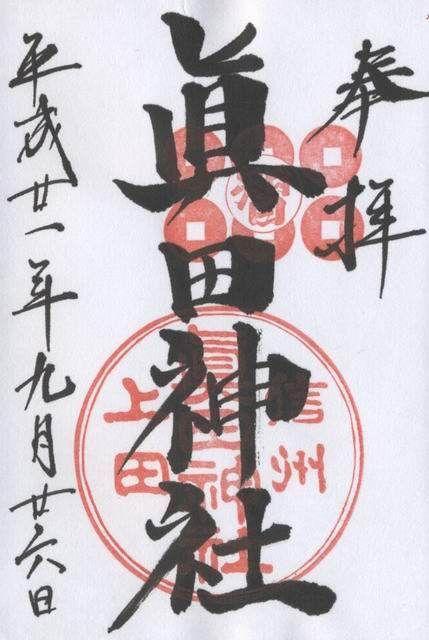 奉拝
眞田神社
信州
眞田神社
上田
平成廿一年九月廿六日